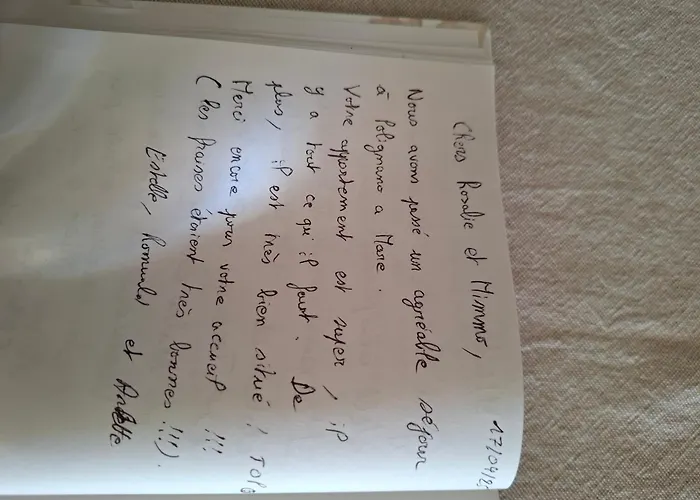 17/04/2
Chers Rosalie et Mimmo,
Nous avons passé un agréable séjour
à Polignano a Mare.
Votre appartement est super, il
y a tout ce qu'il faut. De
plus, il est très bien situé, TOP
Merci encore pour votre accueil !!!
(les fraises étaient très bonnes !!!).
Estelle, Romuald et